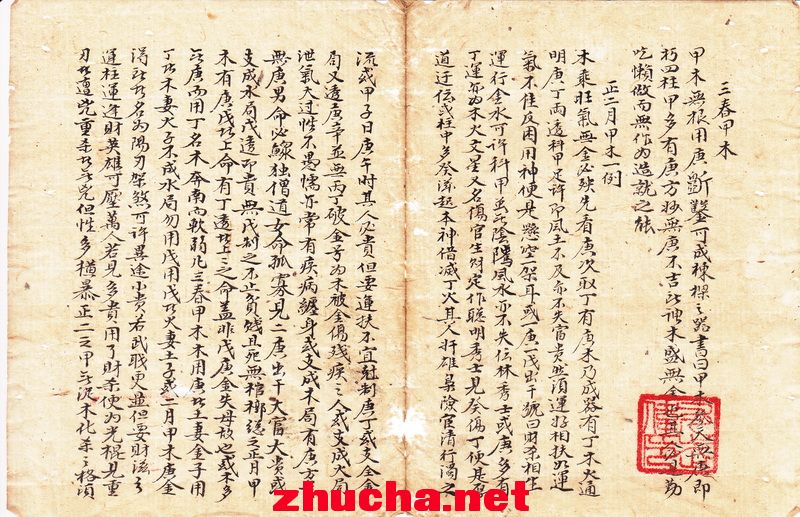 三春甲木
甲木無根用庚斲鑿可成棟樑之器書曰甲木參天無庚即
朽四柱甲多有庚方妙無庚不吉
吃懶做而無作為造就之能
正二月甲木一例
木乘旺氣無金必殃先看庚次取丁有庚木乃成器有丁木火通
明庚丁両透科甲定許即風土不及亦不失富貴然須運好相扶如運
氣不佳反困用神便是懸空一架耳或一庚一戊出干號曰財杀相生
運行金水可許科甲並無陰隲風水亦不失伝林秀士或庚多有
丁運亦為木火文星又名傷官生財定作聰明秀士見癸傷丁便是
道迂伝或柱中多癸滋起木神借滅丁火其人奸雄梟險宦清行濁
流或甲子日庚午时其人必貴但要運扶不宜尅制庚丁或支全金
局又透庚辛並無丙丁破金号為木被金傷残疾之人或支成火局
泄氣太过性不愚懦亦常有疾病纏身或支成木局有庚方
無庚男命必鰥独僧道女命孤寡見二庚出干大富大貴或
支成水局戊透可貴無戊制之不止貧賎且死無棺槨総之正月甲
木有庚戊者上命有丁透者上之命蓋非戊庚金失母故也或木多
無庚而用丁名木奔南而軟弱凡三春甲木木用庚者土妻金子用
丁者木妻火子不成水局勿用戊用戊者火妻土子或二月甲木庚金
得所者名為陽刃架煞可許異途小貴若武職更並但要財滋
運柱運逢財英雄可壓萬人若見多貴用了財杀便為光棍見重
刃者遭兇重杀者無兇但性多橫暴正二之甲無从木化杀之格須
zhucha.net